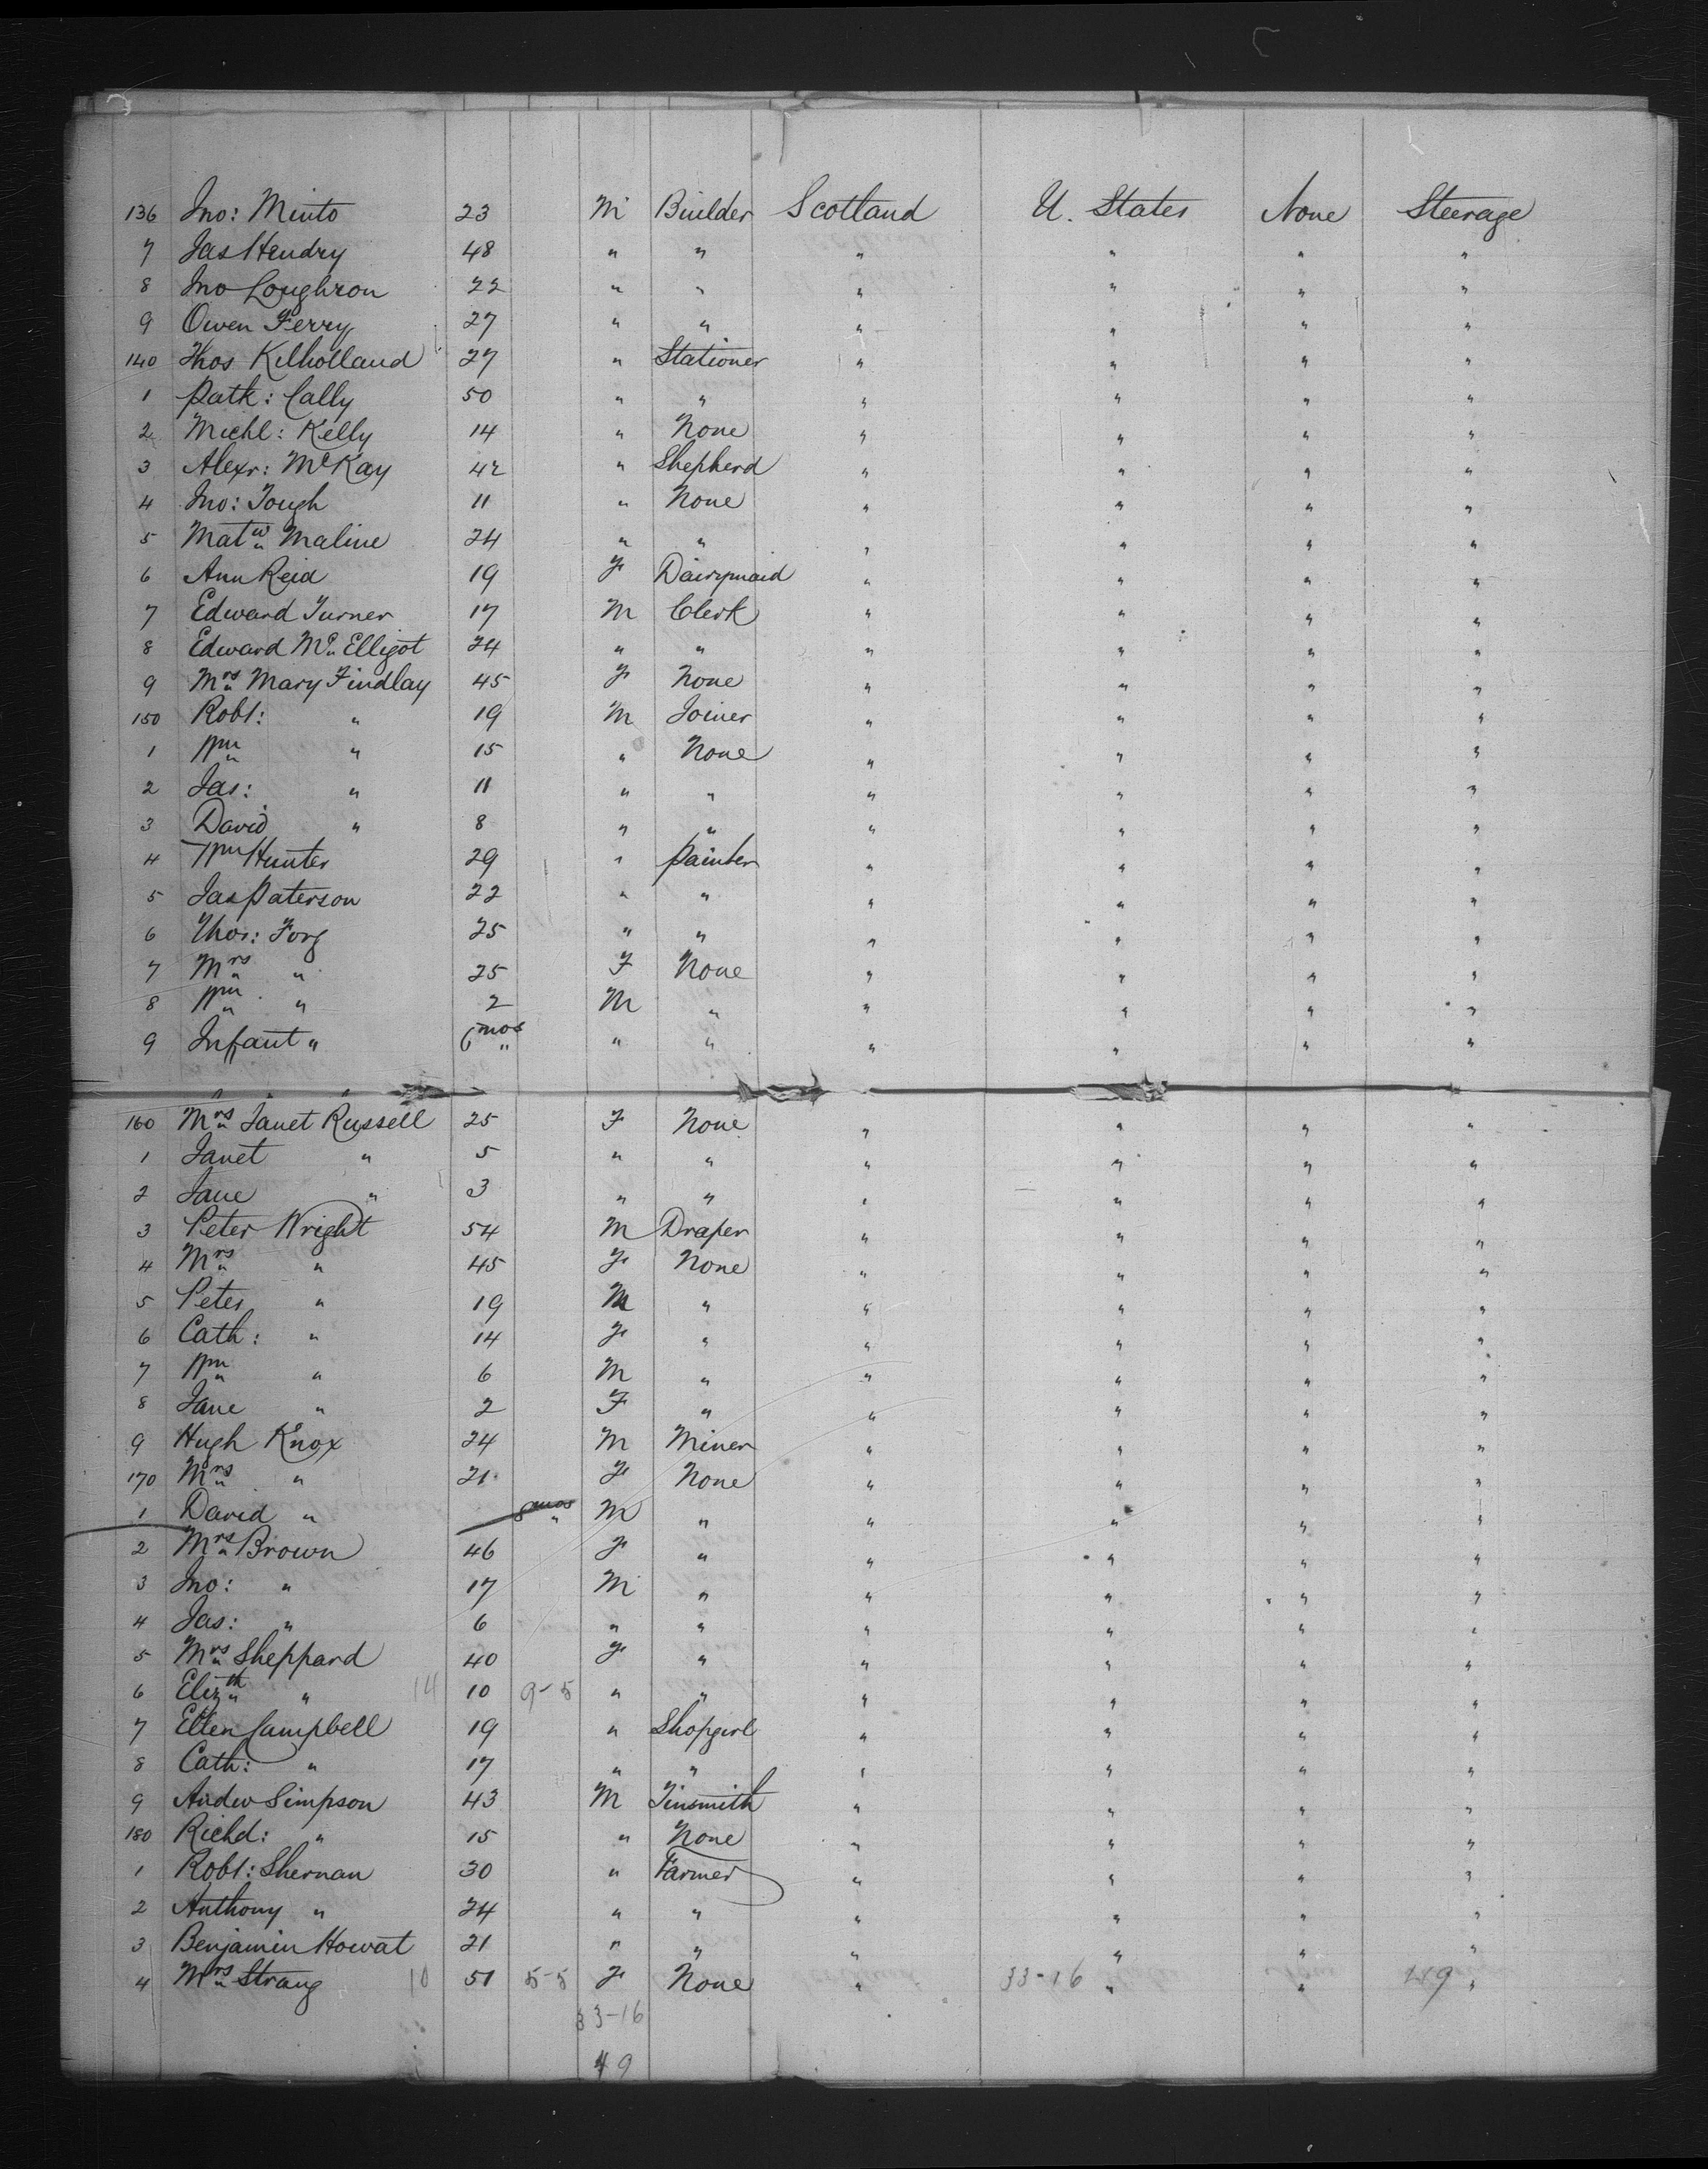 136 Jno: Minto 23 M Builder Scotland U. States None Steerage
7 Jas Hendry 48 " " " " " "
8 Jno Loughron 22 " " " " " "
9 Owen Ferry 27 " " " " " "
140 Thos Kilholland 27 " Stationer " " " "
1 Patk: Cally 50 " " " " " "
2 Michl: Kelly 14 " None " " " "
3 Alexr: McKay 42 " Shepherd " " " "
4 Jno: Tough 11 " None " " " "
5 Matw Maline 24 " " " " " "
6 Ann Reid 19 F Dairymaid " " " "
7 Edward Turner 17 M Clerk " " " "
8 Edward Mc Elligot 24 " " " " " "
9 Mrs Mary Findlay 45 F None " " " "
150 Robt: " 19 M Joiner " " " "
1 Wm " 15 " None " " " "
2 Jas: " 11 " " " " " "
3 David " 8 " " " " " "
4 Wm Hunter 29 " Painter " " " "
5 Jas Paterson 22 " " " " " "
6 Thos: Forg 25 " " " " " "
7 Mrs " 25 F None " " " "
8 Wm " 2 M " " " " "
9 Infant " 6 mos " " " " " "
160 Mrs Janet Russell 25 F None " " " "
1 Janet " 5 " " " " " "
2 Jane " 3 " " " " " "
3 Peter Wright 54 M Draper " " " "
4 Mrs " 45 F None " " " "
5 Peter " 19 M " " " " "
6 Cath: " 14 F " " " " "
7 Wm " 6 M " " " " "
8 Jane " 2 F " " " " "
9 Hugh Knox 24 M Miner " " " "
170 Mrs " 21 F None " " " "
1 David " 8 mos M " " " " "
2 Mrs Brown 46 F " " " " "
3 Jno: " 17 M " " " " "
4 Jas: " 6 " " " " " "
5 Mrs Sheppard 40 F " " " " "
6 Elizth " 14 10 9-5 " " " " " "
7 Ellen Campbell 19 " Shopgirl " " " "
8 Cath: " 17 " " " " " "
9 Andw Simpson 43 M Tinsmith " " " "
180 Richd: " 15 " None " " " "
1 Robt: Shernan 30 " Farmer " " " "
2 Anthony " 24 " " " " " "
3 Benjamin Howat 21 " " " " " "
4 Mrs Strang 10 51 5-5 F None " 33-16 " " 49 "
33-16
49